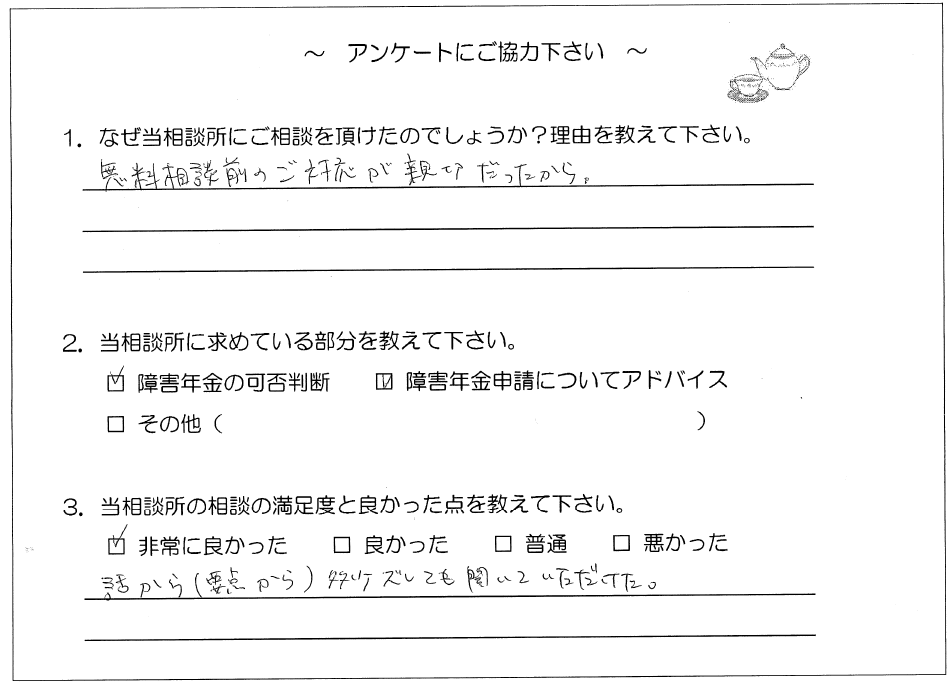 ～ アンケートにご協力下さい ～
1. なぜ当相談所にご相談を頂けたのでしょうか？理由を教えて下さい。
無料相談前のご対応が親切だったから。
2. 当相談所に求めている部分を教えて下さい。
☑ 障害年金の可否判断 ☑ 障害年金申請についてアドバイス
□ その他（ ）
3. 当相談所の相談の満足度と良かった点を教えて下さい。
☑ 非常に良かった □ 良かった □ 普通 □ 悪かった
話から(要点から)多少ズレても聞いていただけた。